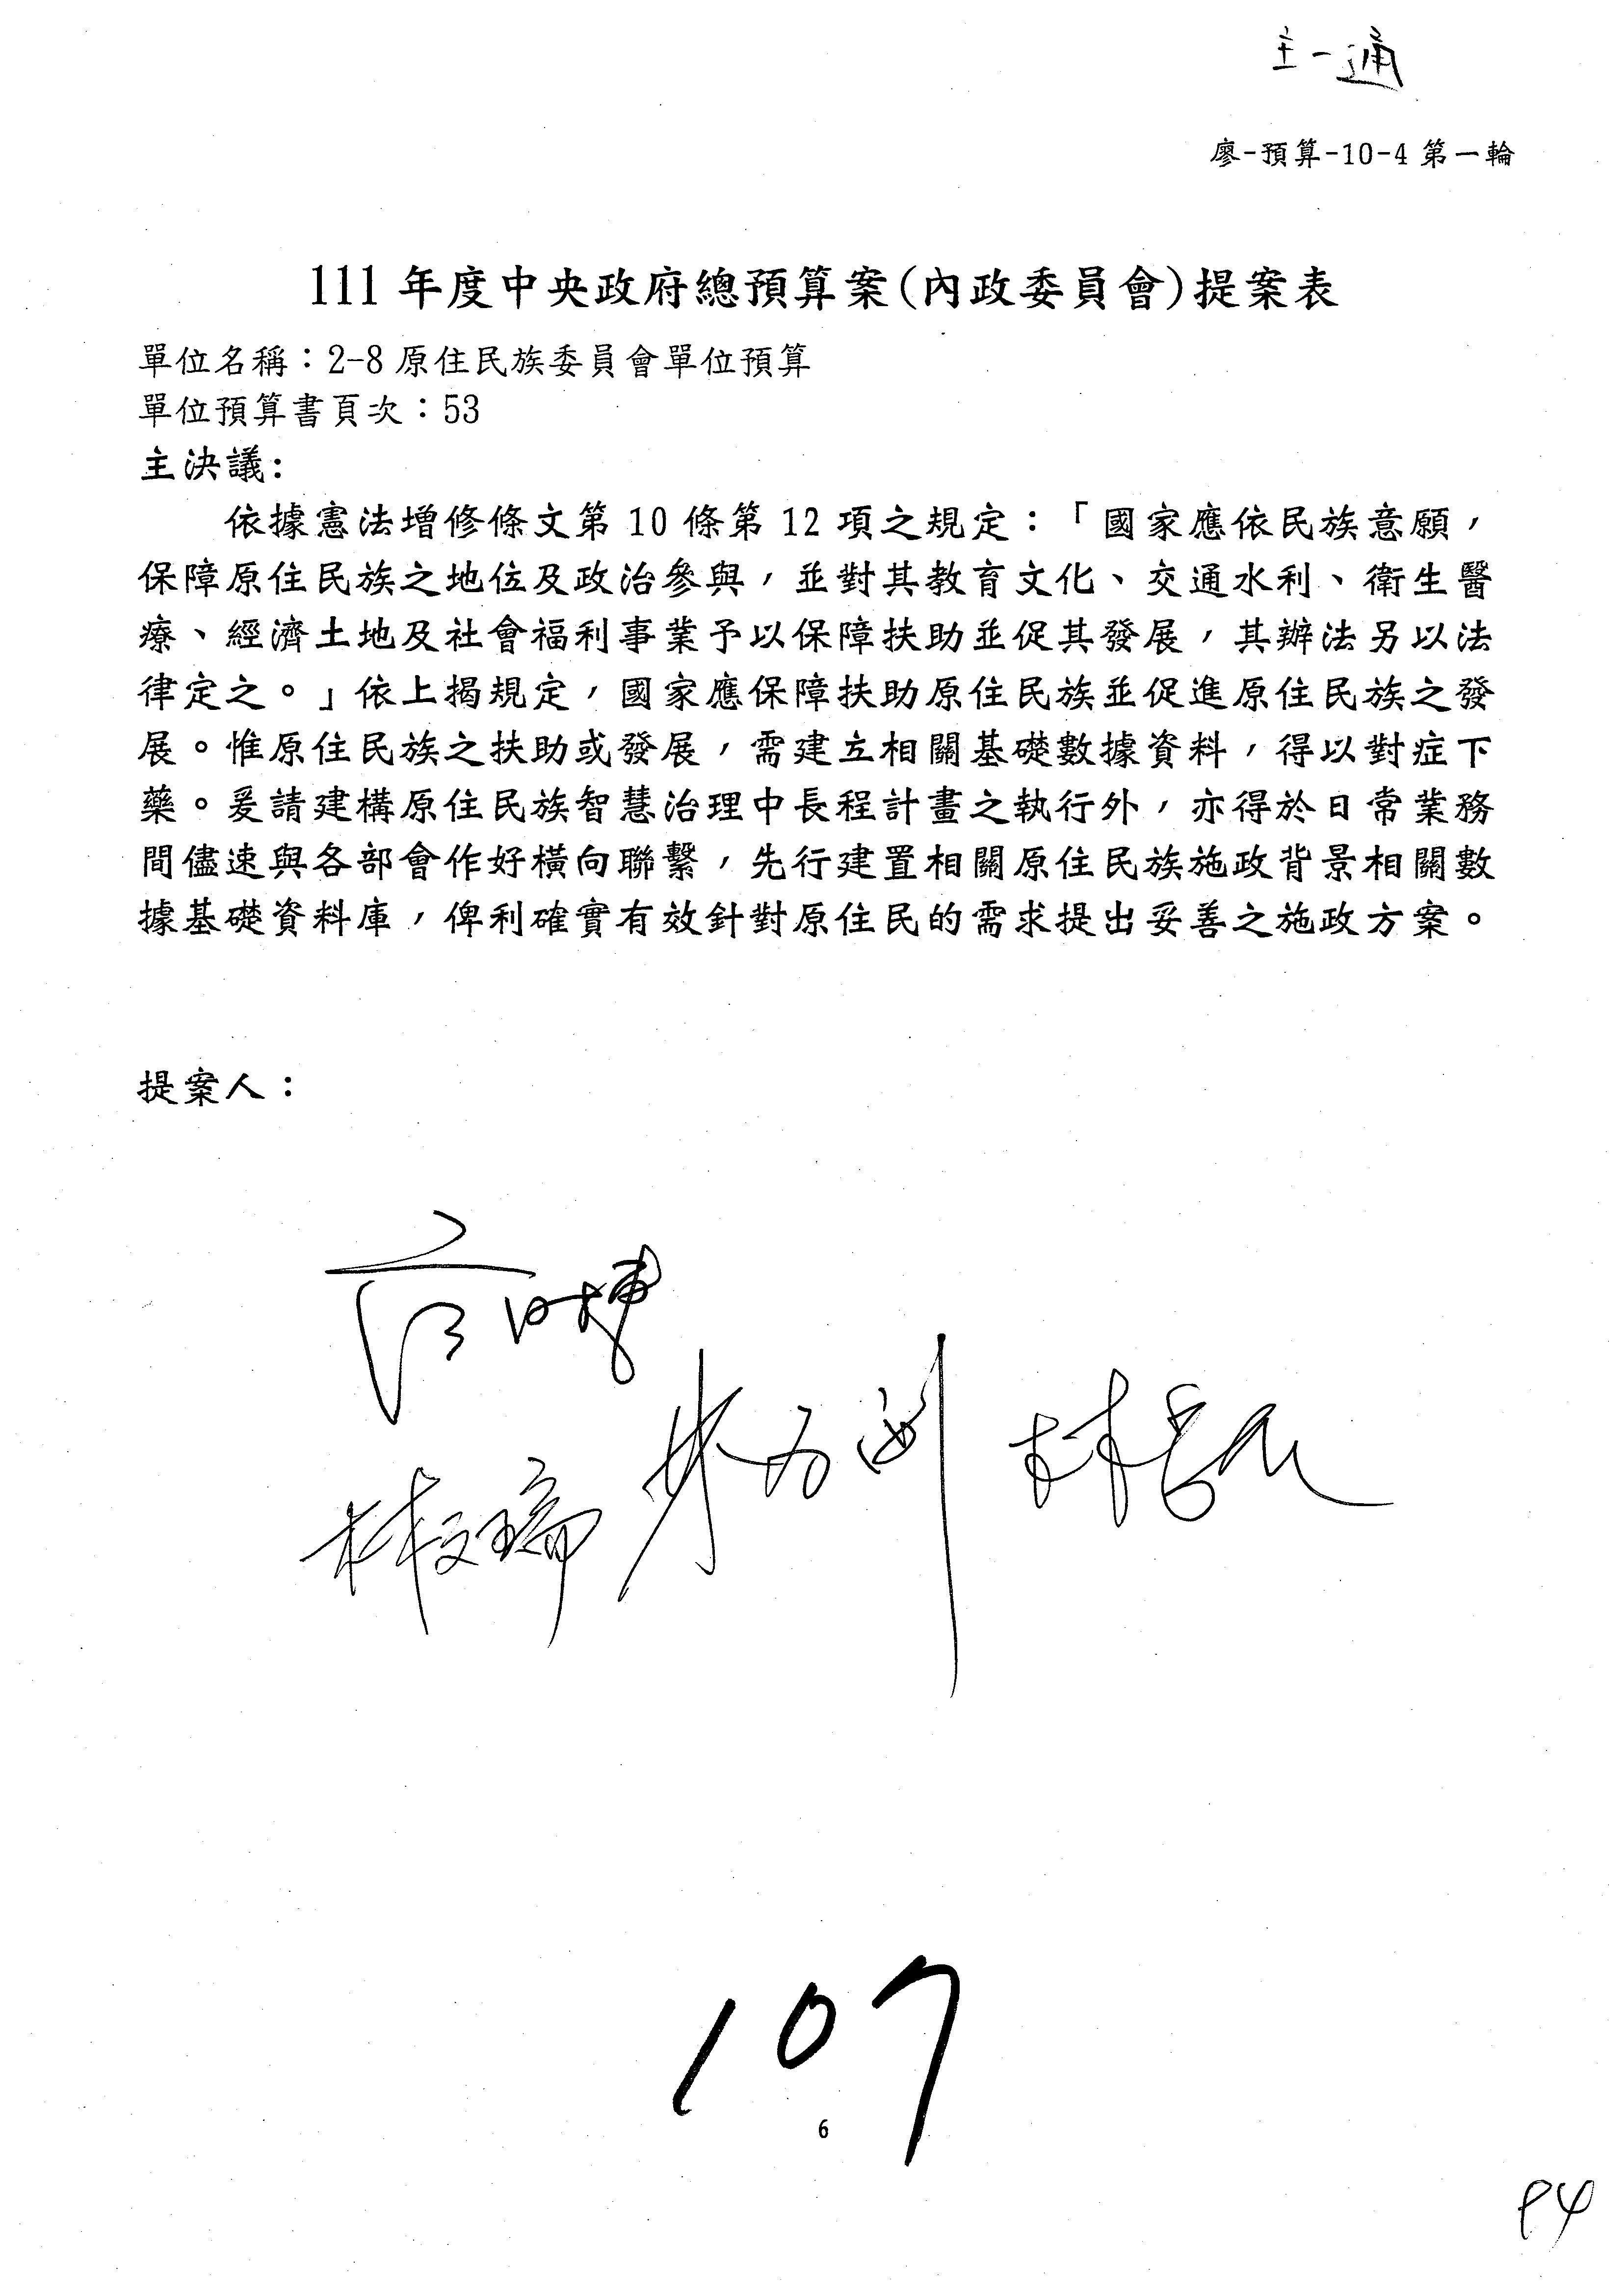 主一通
廖-預算-10-4 第一輪
111 年度中央政府總預算案(內政委員會)提案表
單位名稱：2-8 原住民族委員會單位預算
單位預算書頁次：53
主決議:
依據憲法增修條文第 10 條第 12 項之規定：「國家應依民族意願，
保障原住民族之地位及政治參與，並對其教育文化、交通水利、衛生醫
療、經濟土地及社會福利事業予以保障扶助並促其發展，其辦法另以法
律定之。」依上揭規定，國家應保障扶助原住民族並促進原住民族之發
展。惟原住民族之扶助或發展，需建立相關基礎數據資料，得以對症下
藥。爰請建構原住民族智慧治理中長程計畫之執行外，亦得於日常業務
間儘速與各部會作好橫向聯繫，先行建置相關原住民族施政背景相關數
據基礎資料庫，俾利確實有效針對原住民的需求提出妥善之施政方案。
提案人：
林文瑞
107
6
P4